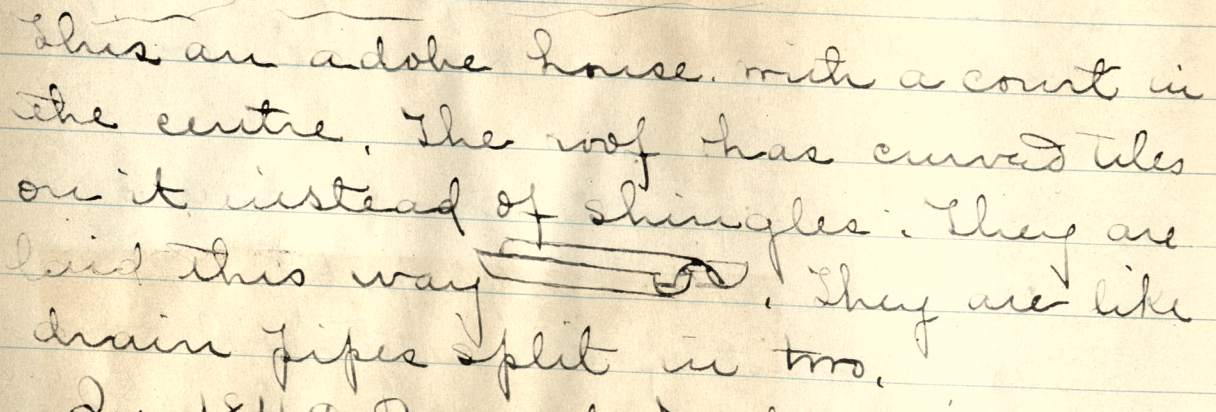 This an adobe house with a court in
the centre. The roof has curved tiles
on it instead of shingles. They are
laid this way . They are like
drain pipes split in two.